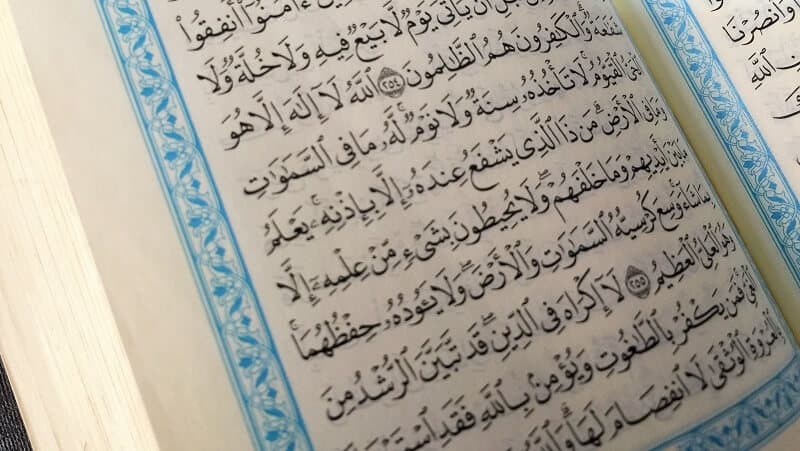 وَٱنصُرْنَا
ٱللَّهِ
ءَامَنُوٓا۟ أَنفِقُوا۟
أَن يَأْتِىَ يَوْمٌ لَّا بَيْعٌ فِيهِ وَلَا خُلَّةٌ وَلَا
شَفَـٰعَةٌ ۗ وَٱلْكَـٰفِرُونَ هُمُ ٱلظَّـٰلِمُونَ ٢٥٤ ٱللَّهُ لَآ إِلَـٰهَ إِلَّا هُوَ
ٱلْحَىُّ ٱلْقَيُّومُ ۚ لَا تَأْخُذُهُۥ سِنَةٌ وَلَا نَوْمٌ ۚ لَّهُۥ مَا فِى ٱلسَّمَـٰوَٰتِ
وَمَا فِى ٱلْأَرْضِ ۗ مَن ذَا ٱلَّذِى يَشْفَعُ عِندَهُۥٓ إِلَّا بِإِذْنِهِۦ ۚ يَعْلَمُ
مَا بَيْنَ أَيْدِيهِمْ وَمَا خَلْفَهُمْ ۖ وَلَا يُحِيطُونَ بِشَىْءٍ مِّنْ عِلْمِهِۦٓ إِلَّا
بِمَا شَآءَ ۚ وَسِعَ كُرْسِيُّهُ ٱلسَّمَـٰوَٰتِ وَٱلْأَرْضَ ۖ وَلَا يَـُٔودُهُۥ حِفْظُهُمَا ۚ
وَهُوَ ٱلْعَلِىُّ ٱلْعَظِيمُ ٢٥٥ لَآ إِكْرَاهَ فِى ٱلدِّينِ ۖ قَد تَّبَيَّنَ ٱلرُّشْدُ مِنَ
ٱلْغَىِّ ۚ فَمَن يَكْفُرْ بِٱلطَّـٰغُوتِ وَيُؤْمِنۢ بِٱللَّهِ فَقَدِ
بِٱلْعُرْوَةِ ٱلْوُثْقَىٰ لَا ٱنفِصَامَ لَهَا ۗ وَٱللَّهُ